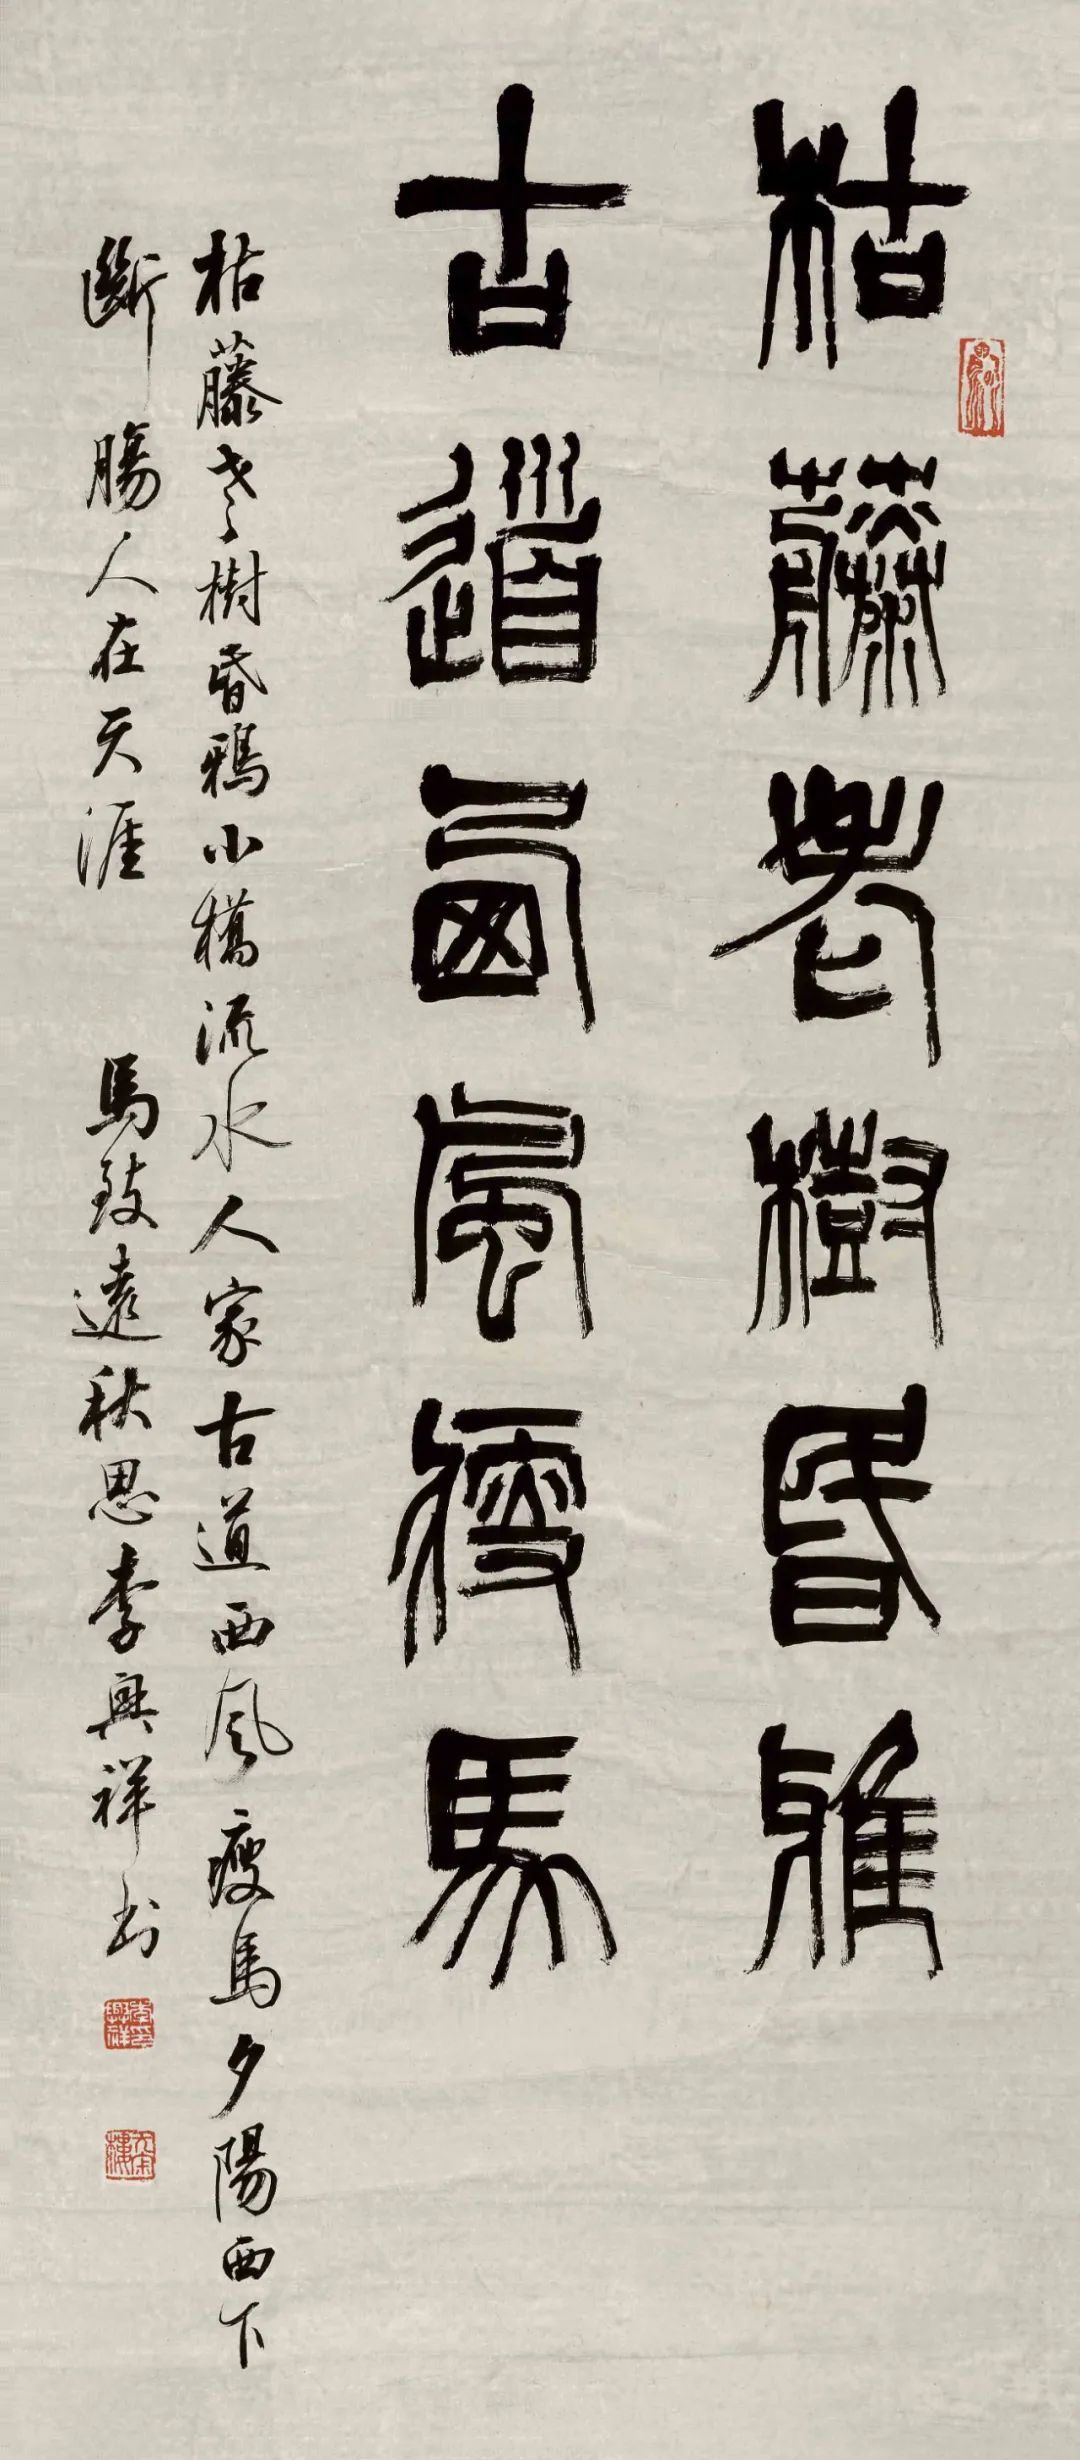 枯藤老樹昏雅
古道西風瘦馬
枯藤老樹昏鴉小橋流水人家古道西風瘦馬夕陽西下
斷腸人在天涯 馬致遠秋思李興祥书